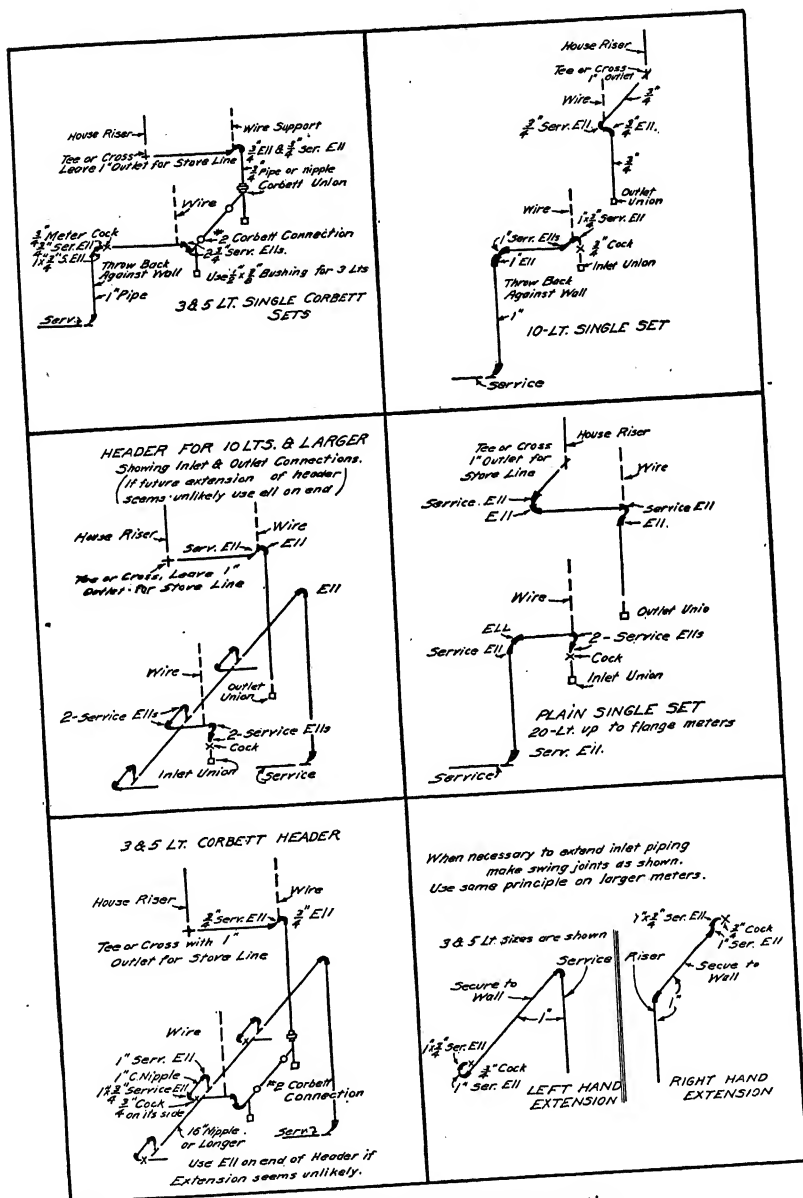 House Riser
Wire Support
Tee or Cross
Leave 1" Outlet for Stove Line
3/4" Ell & 3/4" Ser. Ell
3/4" Pipe or nipple
Corbett Union
Wire
3/4" Meter Cock
3/4" Ser. Ell
1"x3/4" S. Ell
#2 Corbett Connection
2 3/4" Serv. Ells.
Throw Back
Against Wall
1" Pipe
Serv.
Bushing for 3 Lts
3 & 5 LT. SINGLE CORBETT
SETS
House Riser
Tee or Cross
1" outlet
Wire
3/4"
3/4" Serv. Ell
3/4" Ell.
3/4"
Outlet
Union
Wire
1"x3/4" Serv. Ell
1" Serv. Ells
3/4" Cock
1" Ell
Inlet Union
Throw Back
Against Wall
1"
10-LT. SINGLE SET
Service
HEADER FOR 10 LTS. & LARGER
Showing Inlet & Outlet Connections.
(If future extension of header
seems unlikely use ell on end)
House Riser
Wire
Serv. Ell
Ell
Tee or Cross, Leave 1"
Outlet for Stove Line
Ell
Wire
Outlet
Union
2-Service Ells
2-Service Ells
Cock
Inlet Union
Service
Tee or Cross
1" Outlet for
Stove Line
House Riser
Wire
Service. Ell
Ell
Service Ell
Ell.
Wire
Outlet Unio
ELL
Service Ell
2-Service Ells
Cock
Inlet Union
PLAIN SINGLE SET
20-Lt. up to flange meters
Serv. Ell.
Service
3 & 5 LT. CORBETT HEADER
House Riser
Wire
3/4" Serv. Ell
3/4" Ell
Tee or Cross with 1"
Outlet for Stove Line
Wire
1" Serv. Ell
1" C. Nipple
1"x3/4" Service Ell
3/4" Cock
on its side
#2 Corbett
Connection
16" Nipple
or Longer
Serv.
Use Ell on end of Header if
Extension seems unlikely.
When necessary to extend inlet piping
make swing joints as shown.
Use same principle on larger meters.
3 & 5 Lt. sizes are shown
Service
Secure to
Wall
1"
1"x3/4" Ser. Ell
3/4" Cock
1" Ser. Ell
LEFT HAND
EXTENSION
1"x3/4" Ser. Ell
3/4" Cock
1" Ser. Ell
Riser
Secue to
Wall
1"
RIGHT HAND
EXTENSION